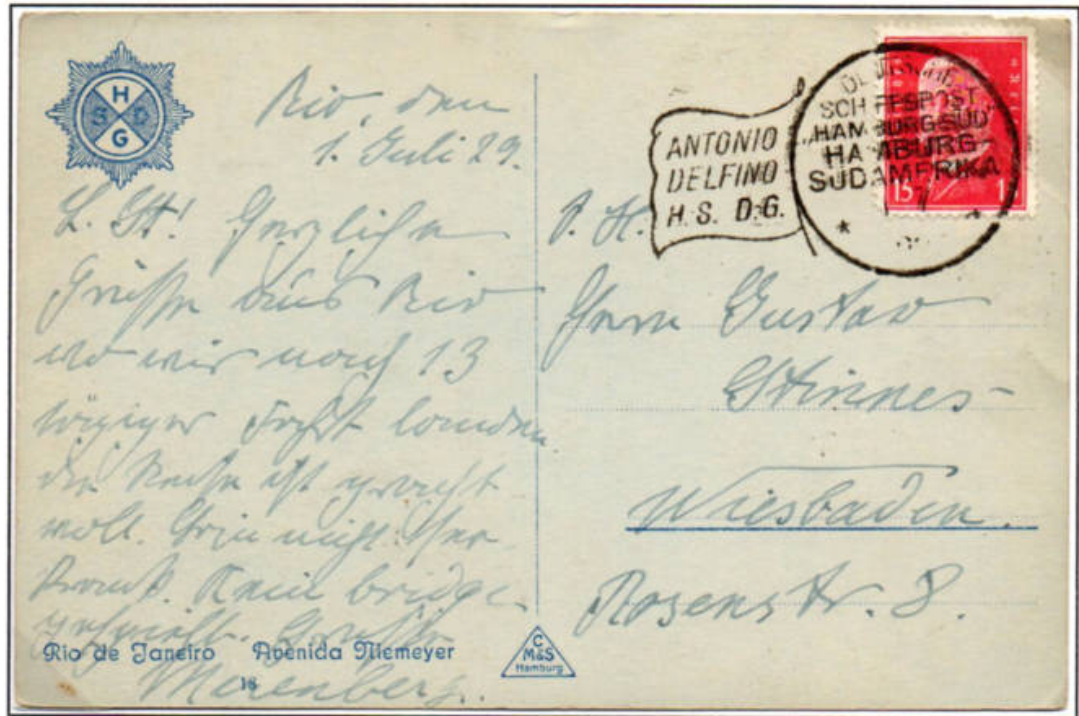 H
S D
G
Rio, den
1. Juli 29.
L. St! Herzliche
Grüsse aus Rio
wo wir nach 13
tägiger Fahrt landen
die Reise ist pracht
voll. Bin nicht
krank. Kein bridge
gespielt. Grüsse
Merenberg.
Rio de Janeiro Avenida Niemeyer
18
C
M&S
Hamburg
ANTONIO
DELFINO
H. S. D. G.
DEUTSCHE
SCHIFFSPOST
"HAMBURG SÜD"
HAMBURG-
SÜDAMERIKA
15 15
P. H.
Herrn Gustav
Stinnes
Wiesbaden.
Rosenstr. 8.